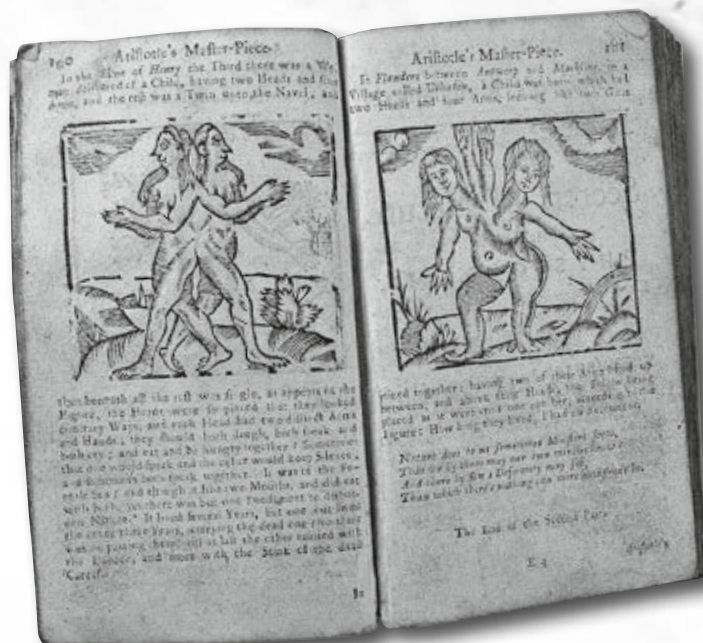 190 Ariſtotle's Maſter-Piece.
In the time of Henry the Third there was a Wo-
man delivered of a Child, having two Heads and four
Arms, and the reſt was a Twin unto the Navel; and
then beneath all the reſt was ſingle, as appears in the
Figure, the Heads were ſo placed that they looked
contrary Ways, and each Head had two diſtinct Arms
and Hands; they ſhould both laugh, both ſpeak and
both cry; and eat and be hungry together: Sometimes
the one would ſpeak and the other would keep Silence,
and ſometimes both ſpeak together. It was of the Fe-
male Sex; and though it had two Mouths, and did eat
with both, yet there was but one Fundament to
Nature. It lived ſeveral Years, but one
the other three Years, carrying the dead one
the other
the and more with the Stink of the dead
Carcaſe.
In
Ariſtotle's Maſter-Piece.
In Flanders between Antwerp and in a
Village called a Child was born which had
two Heads and four Arms, ſeeming like two Girls
joined together: having two of their Arms lifted up
between, and above their Heads, the being
placed as it were one another, according to the
Figure: How long they lived, I had no
Nature does to us ſometimes Monſters ſhow,
That we by them may our own
And there by Sin's Deformity may ſee,
Than which there's nothing can more be.
The End of the Second Part.